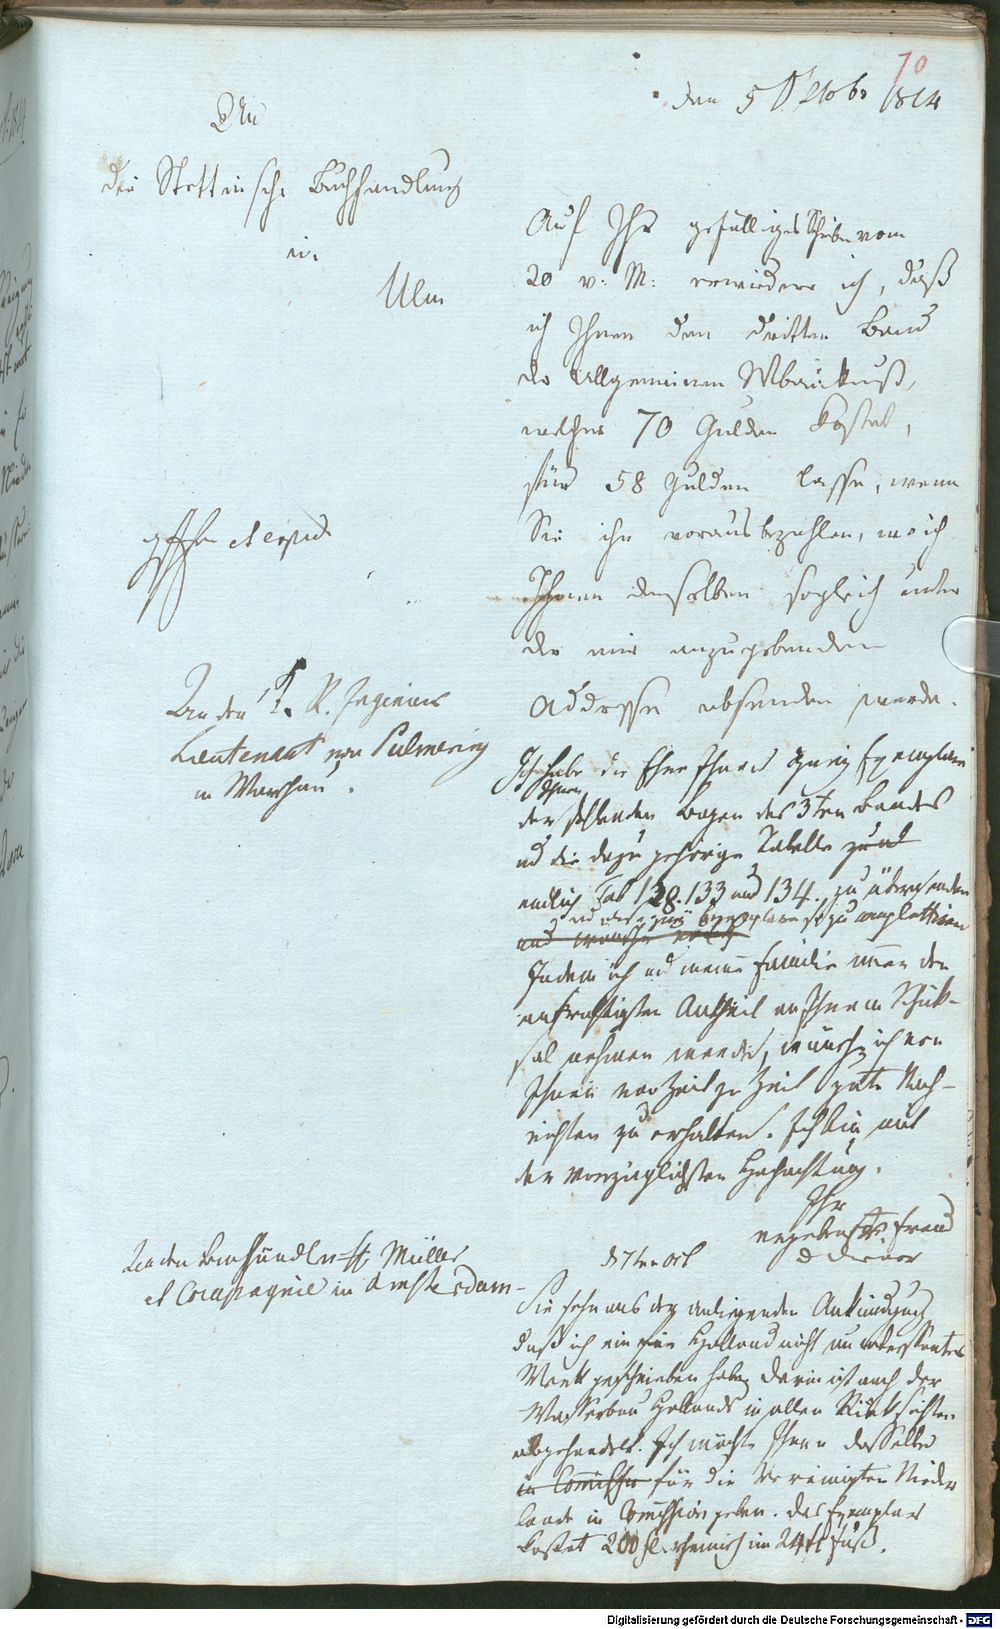 70
den 5 Octobr 1814
An
die Stettinische Buchhandlung
in
Ulm
Auf Ihr gefälliges Schreiben vom
20 v: M: erwiedere ich, daß
ich Ihnen den dritten Band
der Allgemeinen Wbaukunst,
welcher 70 Gulden kostet,
für 58 Gulden lasse, wenn
Sie ihn vorausbezahlen, wo ich
Ihnen denselben sogleich unter
der mir anzugebenden
Addresse absenden werde.
An den K. R. Ingenieur
Lieutenant von Pulmering
in Warschau.
Ich habe die Ehre Ihnen zwey Exemplarien
der fehlenden Bogen des 3ten Bandes
und die dazu gehörige Tabelle
endlich Tab 128. 133 und 134. zu übersenden
und zwey Exemplare so zu complettiren
Indem ich und meine Familie immer den
Antheil an Ihrem Schik-
sal nehmen werde, wünsche ich von
Ihnen von Zeit zu Zeit gute Nach-
richten zu erhalten. Ich bin mit
der vorzüglichsten Hochachtung.
Ihr
ergebenster Freund
d Diener
d 7ten Oct
An den Buchhändler H. Müller
et Compagnie in Amsterdam
Sie sehn aus der anliegenden Ankündigung
daß ich ein für Holland nicht uninteressantes
Werk geschrieben habe, darin ist auch der
Wasserbau Hollands in allen Rücksichten
abgehandelt. Ich möchte Ihnen dasselbe
in Commission für die Vereinigten Nieder
lande in Commission geben. Das Exemplar
kostet 200 fl. rheinisch im 24 fl Fuß.
Digitalisierung gefördert durch die Deutsche Forschungsgemeinschaft - DFG